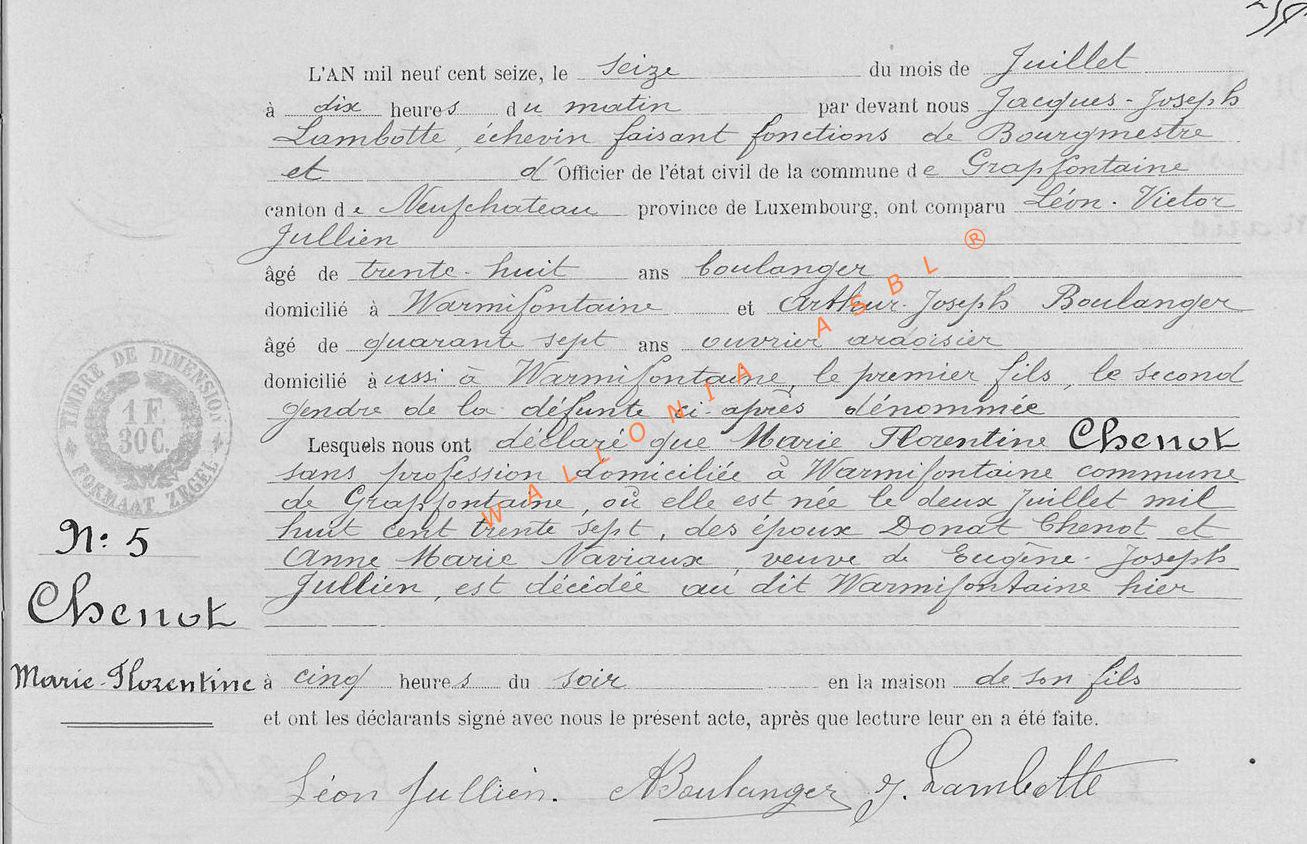 L'AN mil neuf cent seize, le seize du mois de Juillet
à dix heures du matin par devant nous Jacques-Joseph
Lambotte, échevin faisant fonctions de Bourgmestre
et d'Officier de l'état civil de la commune de Grapfontaine
canton de Neufchateau province de Luxembourg, ont comparu Léon-Victor
Jullien
âgé de trente-huit ans boulanger
domicilié à Warmifontaine et Arthur-Joseph Boulanger
âgé de quarante sept ans ouvrier ardoisier
domicilié à ussi à Warmifontaine, le premier fils, le second
gendre de la défunte ci-après dénommée
Lesquels nous ont déclaré que Marie Florentine Chenot
sans profession domiciliée à Warmifontaine commune
de Grapfontaine, où elle est née le deux Juillet mil
huit cent trente sept, des époux Donat Chenot et
Anne Marie Naviaux, veuve de Eugène-Joseph
Jullien, est décédée au dit Warmifontaine hier
à cinq heures du soir en la maison de son fils
et ont les déclarants signé avec nous le présent acte, après que lecture leur en a été faite.
Léon Jullien. ABoulanger J. Lambotte
TIMBRE DE DIMENSION
1 F.
30C.
FORMAAT ZEGEL
N: 5
Chenot
Marie-Florentine
WALLONIA ASBL ®